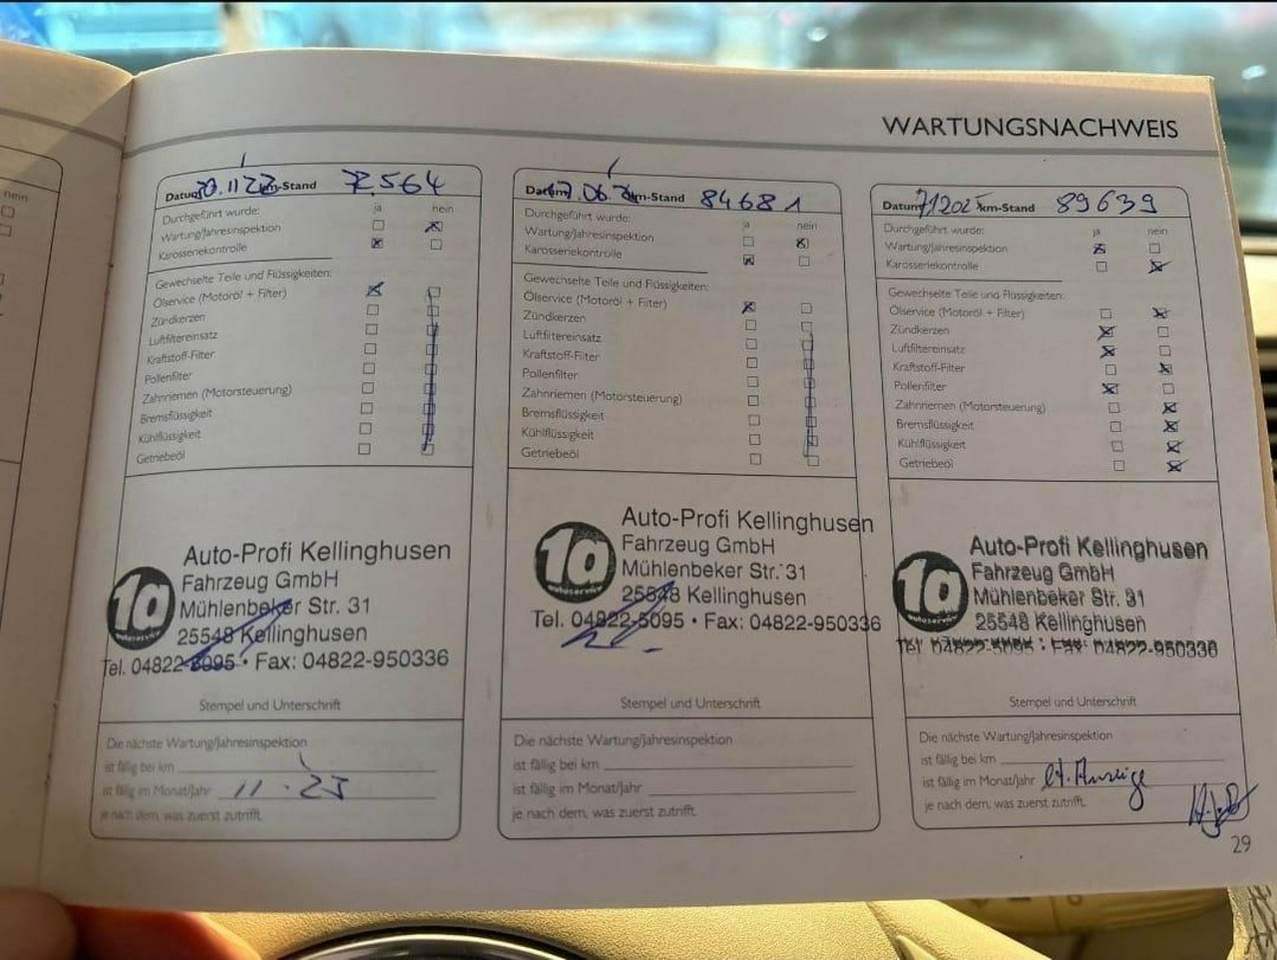 nein
WARTUNGSNACHWEIS
Datum 30.11 22 km-Stand 72.564
Durchgeführt wurde: ja nein
Wartung/Jahresinspektion
Karosseriekontrolle
Gewechselte Teile und Flüssigkeiten:
Ölservice (Motoröl + Filter)
Zündkerzen
Luftfiltereinsatz
Kraftstoff-Filter
Pollenfilter
Zahnriemen (Motorsteuerung)
Bremsflüssigkeit
Kühlflüssigkeit
Getriebeöl
1a autoservice
Auto-Profi Kellinghusen
Fahrzeug GmbH
Mühlenbeker Str. 31
25548 Kellinghusen
Tel. 04822-5095 • Fax: 04822-950336
Stempel und Unterschrift
Die nächste Wartung/Jahresinspektion
ist fällig bei km
ist fällig im Monat/Jahr 11.23
je nach dem, was zuerst zutrifft.
Datum 17.06. km-Stand 84681
Durchgeführt wurde: ja nein
Wartung/Jahresinspektion
Karosseriekontrolle
Gewechselte Teile und Flüssigkeiten:
Ölservice (Motoröl + Filter)
Zündkerzen
Luftfiltereinsatz
Kraftstoff-Filter
Pollenfilter
Zahnriemen (Motorsteuerung)
Bremsflüssigkeit
Kühlflüssigkeit
Getriebeöl
1a autoservice
Auto-Profi Kellinghusen
Fahrzeug GmbH
Mühlenbeker Str. 31
25548 Kellinghusen
Tel. 04822-5095 • Fax: 04822-950336
Stempel und Unterschrift
Die nächste Wartung/Jahresinspektion
ist fällig bei km
ist fällig im Monat/Jahr
je nach dem, was zuerst zutrifft.
Datum km-Stand 89639
Durchgeführt wurde: ja nein
Wartung/Jahresinspektion
Karosseriekontrolle
Gewechselte Teile und Flüssigkeiten:
Ölservice (Motoröl + Filter)
Zündkerzen
Luftfiltereinsatz
Kraftstoff-Filter
Pollenfilter
Zahnriemen (Motorsteuerung)
Bremsflüssigkeit
Kühlflüssigkeit
Getriebeöl
1a autoservice
Auto-Profi Kellinghusen
Fahrzeug GmbH
Mühlenbeker Str. 31
25548 Kellinghusen
Tel. 04822-5095 • Fax: 04822-950336
Stempel und Unterschrift
Die nächste Wartung/Jahresinspektion
ist fällig bei km
ist fällig im Monat/Jahr lt. Anzeige
je nach dem, was zuerst zutrifft.
29